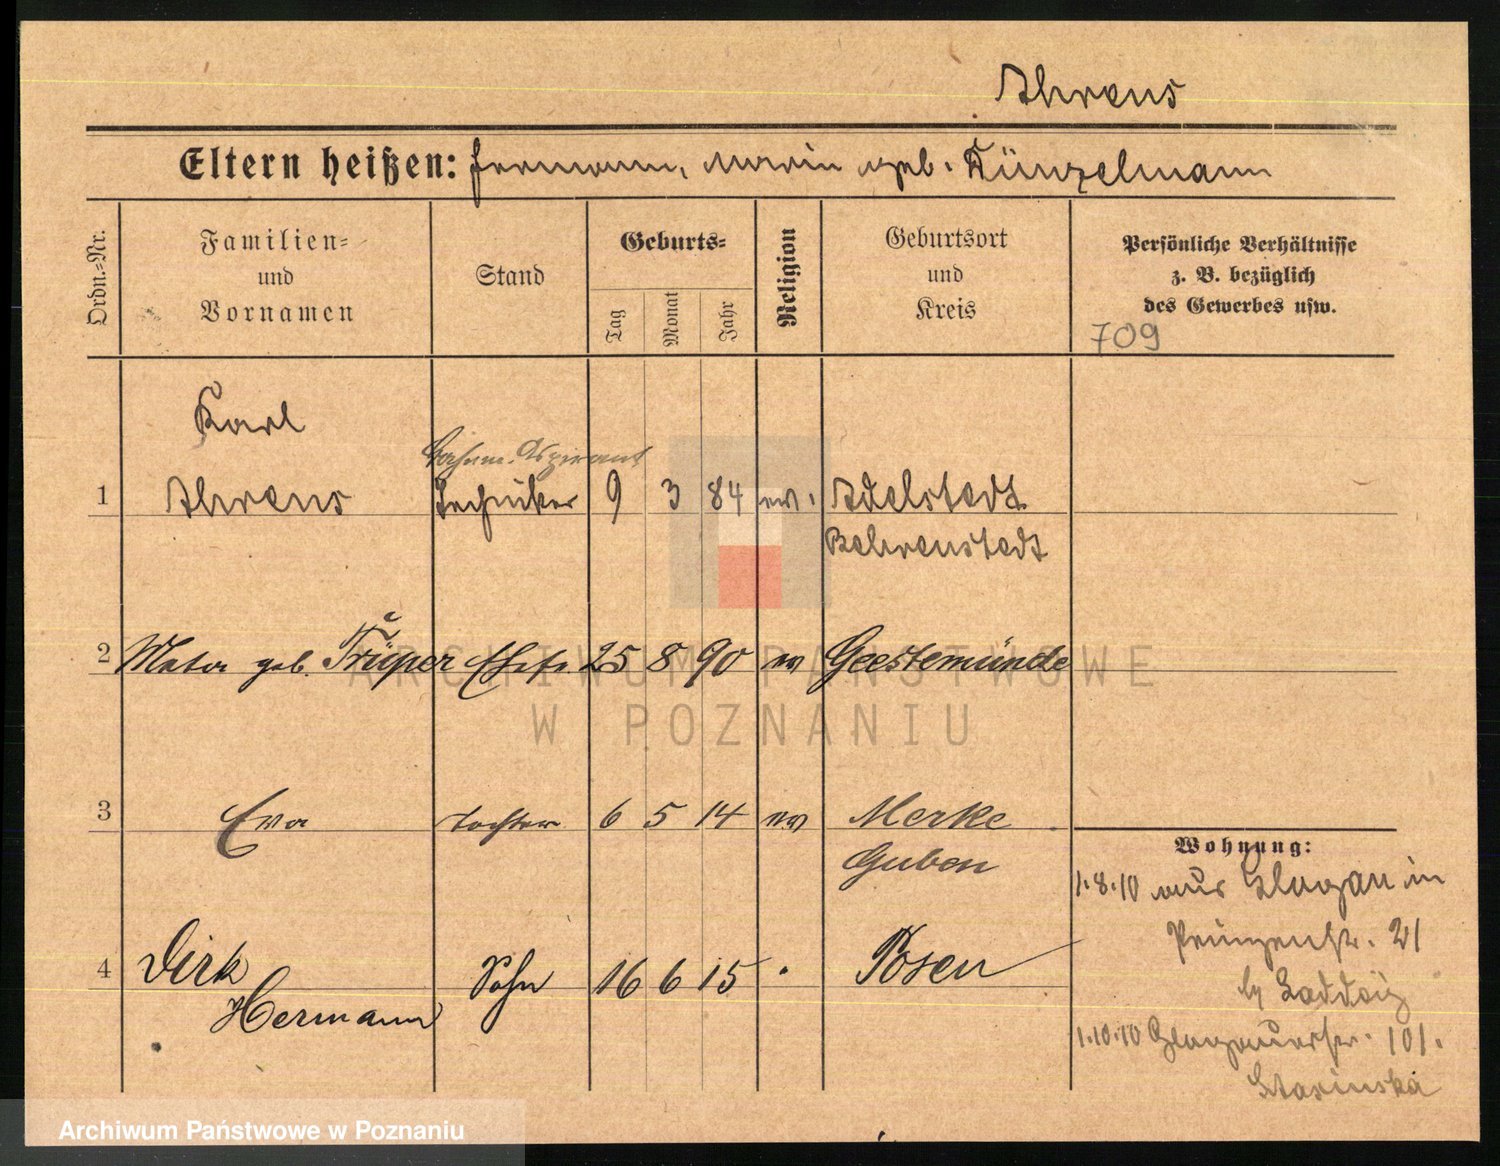 Ahrens
Eltern heißen: Hermann, Marie geb. Künzelmann
Ordn.-Nr.
Familien-
und
Vornamen
Stand
Geburts-
Tag
Monat
Jahr
Religion
Geburtsort
und
Kreis
Persönliche Verhältnisse
z. B. bezüglich
des Gewerbes usw.
709
Karl
Bahnm. Aspirant
1 Ahrens Techniker 9 3 84 ev. Adelstedt
Behrenstedt
2 Meta geb. Trüper Ehefr. 25 8 90 ev Geestemünde
3 Eva Tochter 6 5 14 ev Merke
Guben
Wohnung:
1.8.10 aus Glogau in
Prinzenstr. 21
4 Dirk Sohn 16 6 15 Posen
Hermann
1.10.10 Glogauerstr. 101.
ARCHIWUM PAŃSTWOWE
W POZNANIU
Archiwum Państwowe w Poznaniu